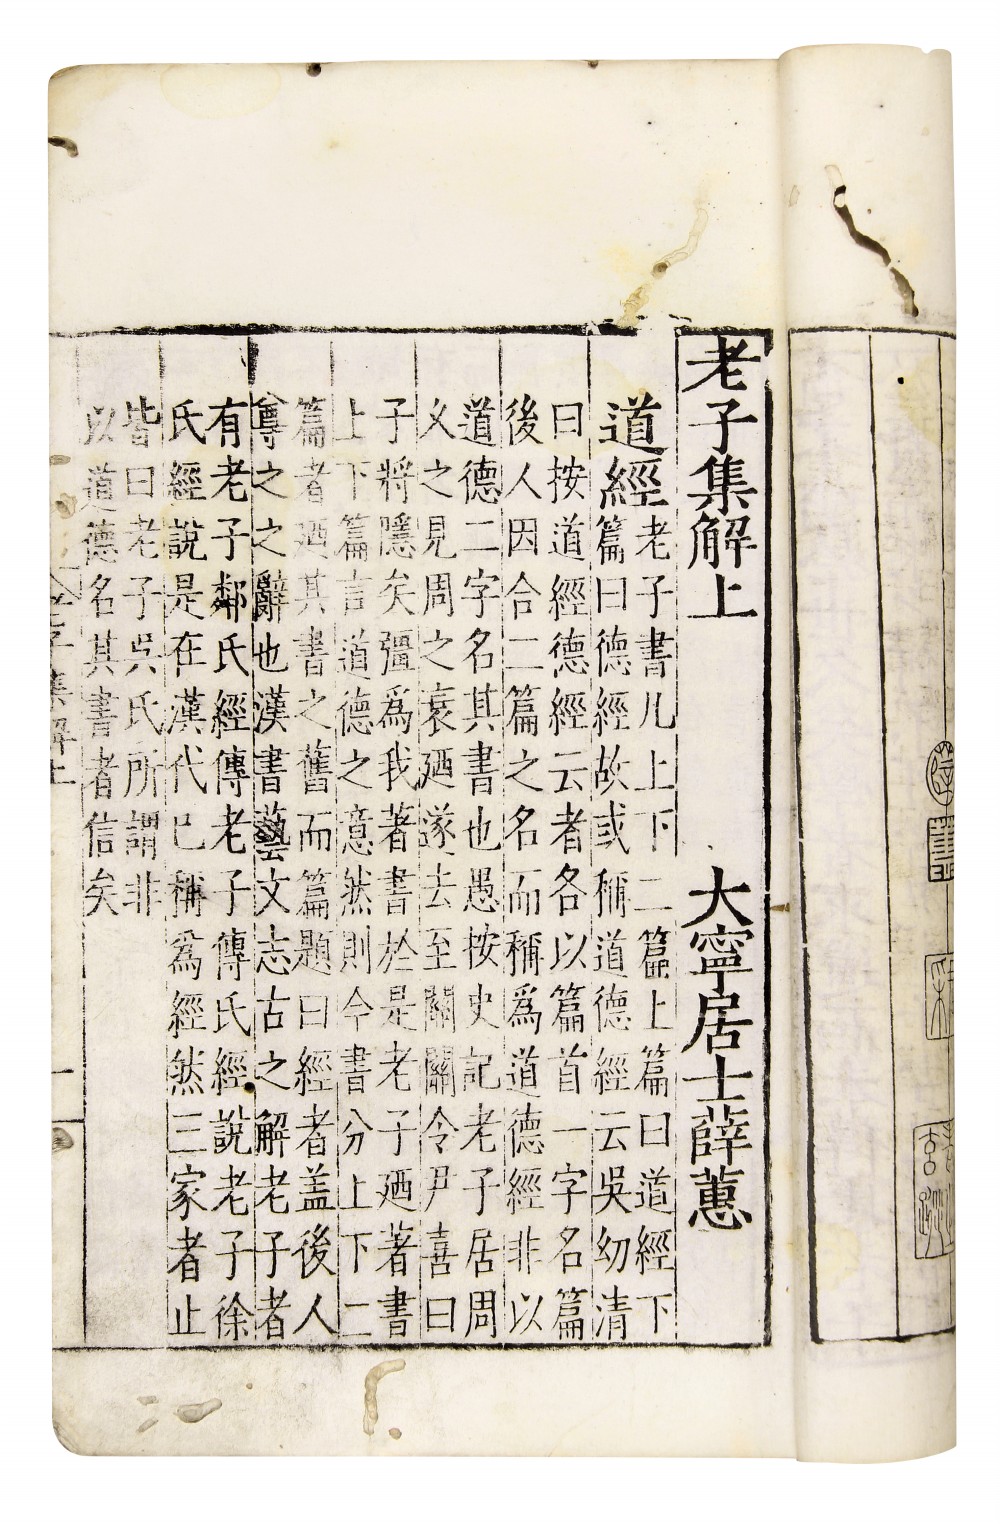 老子集解上
大寧居士薛蕙
道經
老子書凡上下二篇上篇曰道經下
篇曰德經故或稱道德經云吳幼清
曰按道經德經云者各以篇首一字名篇
後人因合二篇之名而稱爲道德經非以
道德二字名其書也愚按史記老子居周
乆之見周之衰廼遂去至關關令尹喜曰
子將隱矣彊爲我著書於是老子廼著書
上下篇言道德之意然則今書分上下二
篇者廼其書之舊而篇題曰經者盖後人
尊之之辭也漢書藝文志古之解老子者
有老子鄰氏經傳老子傅氏經說老子徐
氏經說是在漢代已稱爲經然三家者止
皆曰老子吳氏所謂非
以道德名其書者信矣
老子集解上
一